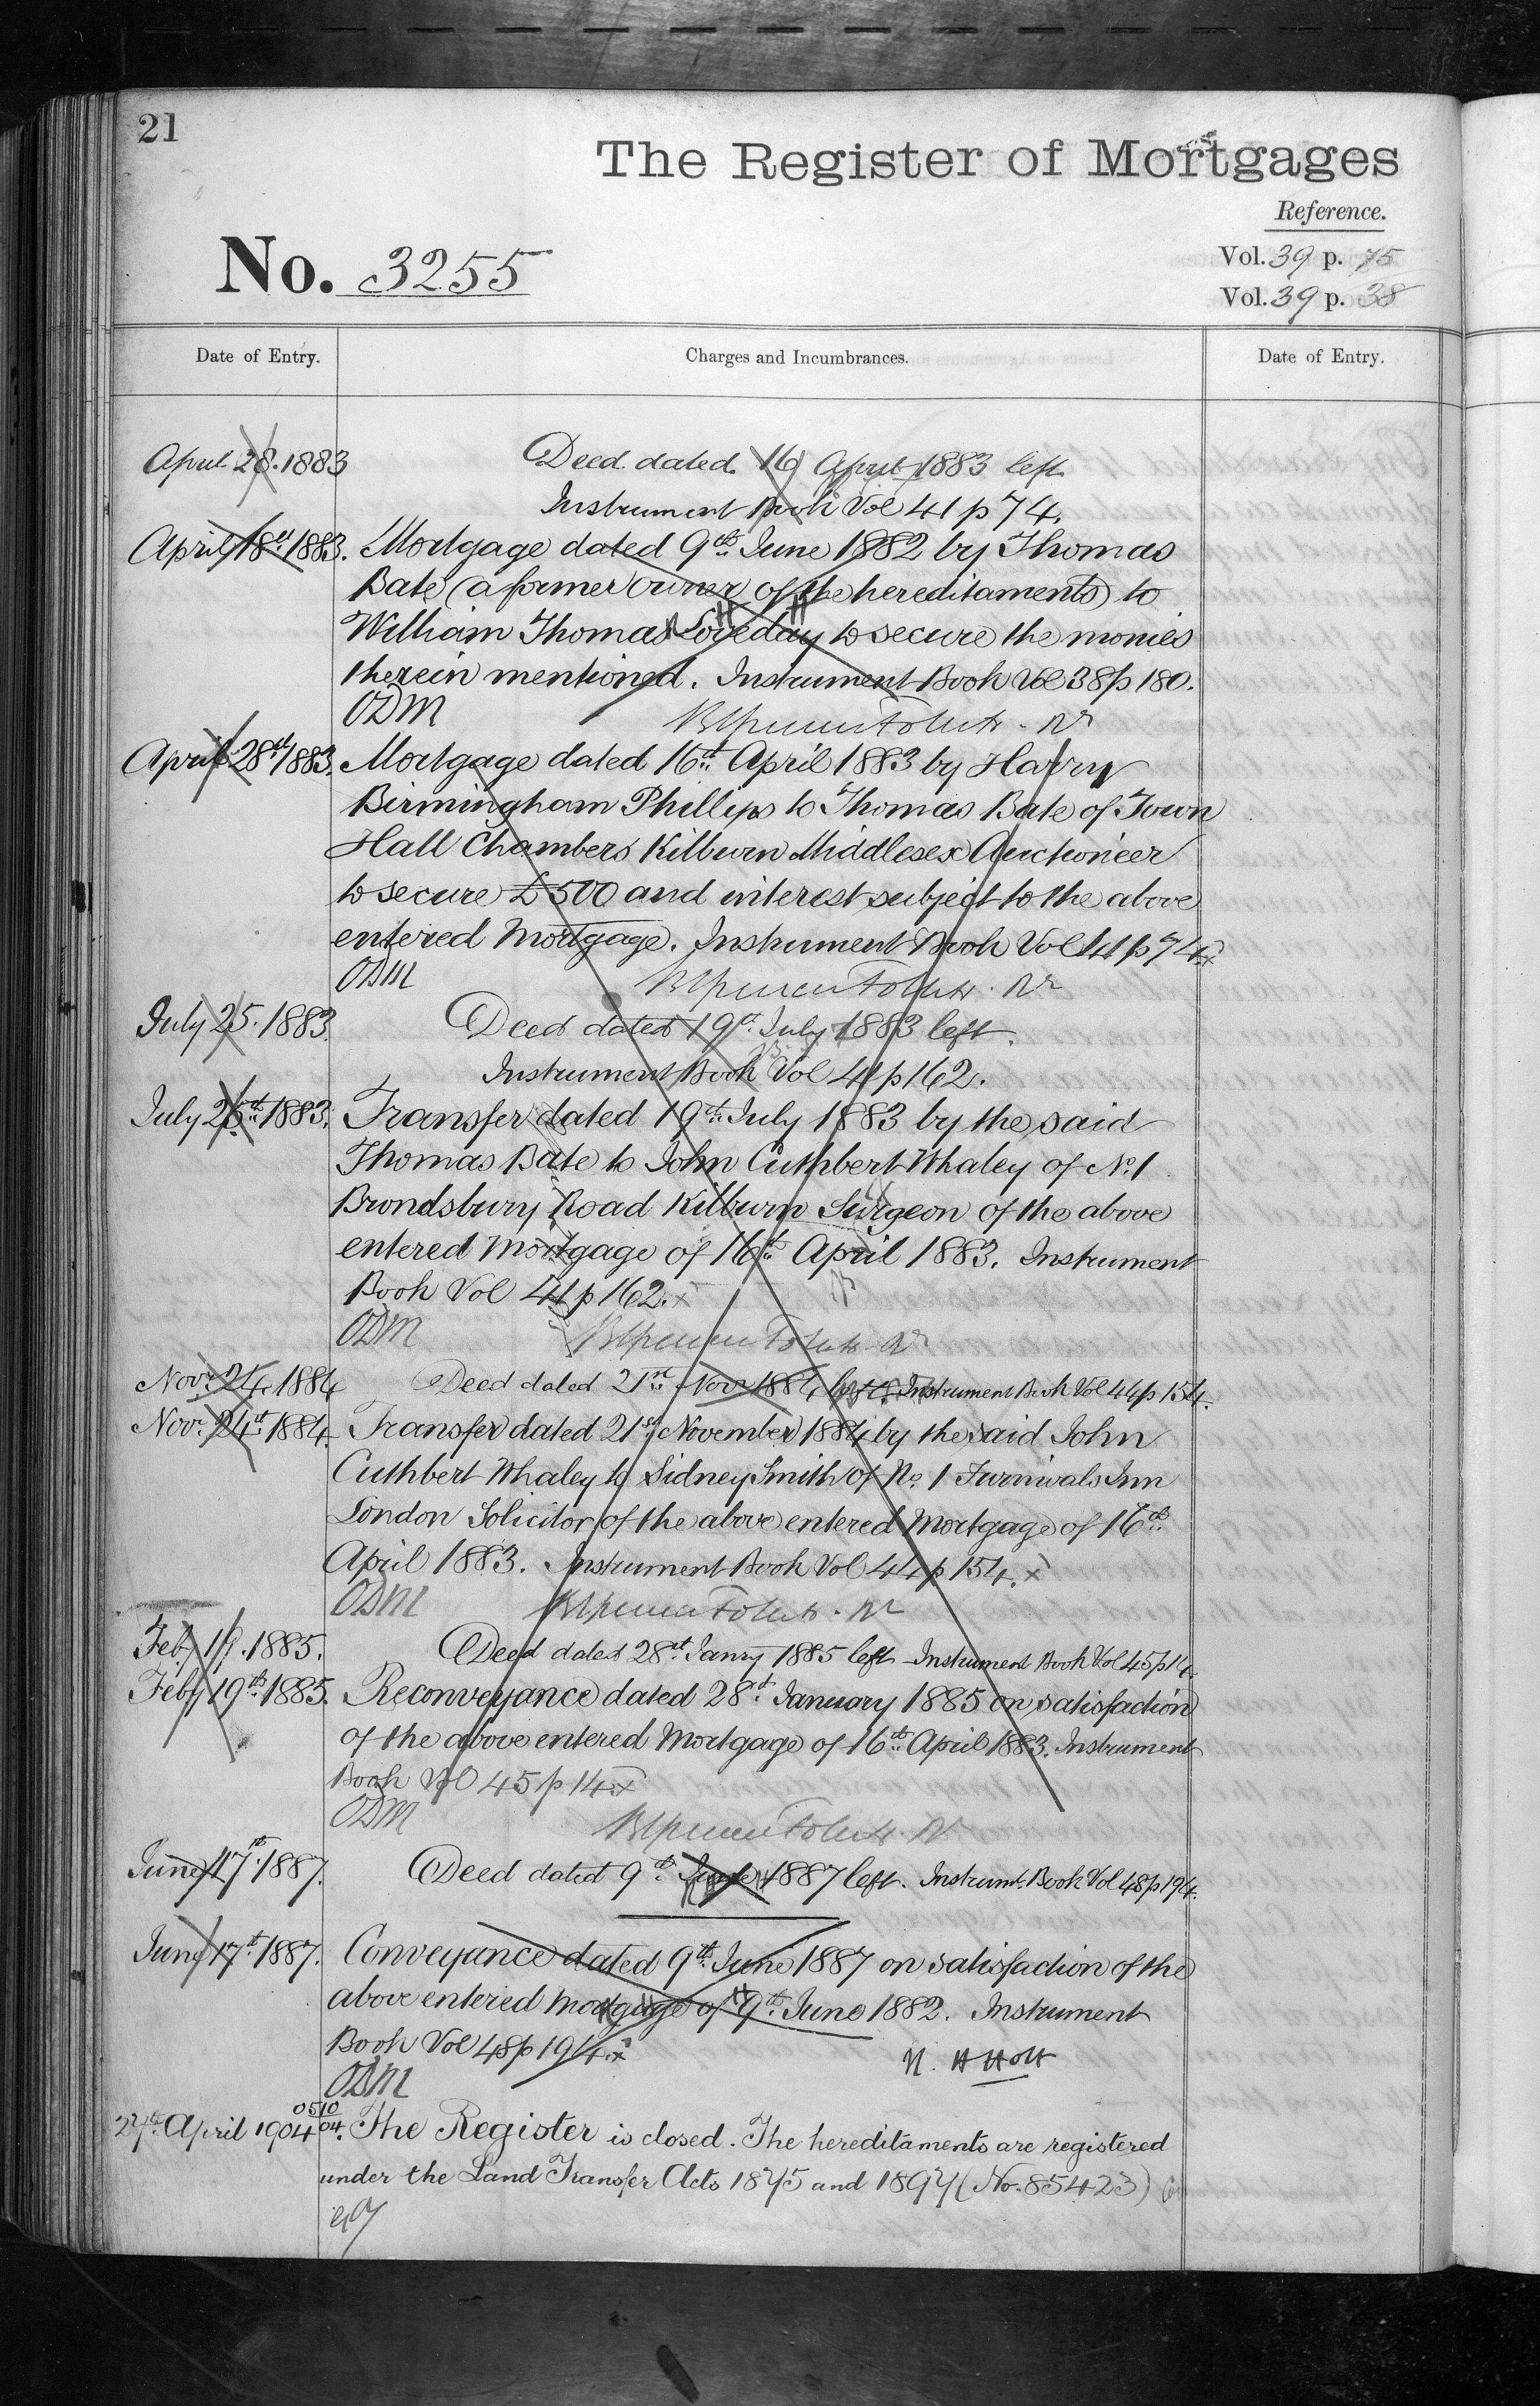 21
The Register of Mortgages
Reference.
No. 3255
Vol. 39 p. 75
Vol. 39 p. 38
Date of Entry.
Charges and Incumbrances.
Date of Entry.
April 28. 1883
Deed dated 16 April 1883 left
Instrument Book Vol 41 p 74.
April 18th 1883.
Mortgage dated 9th June 1882 by Thomas
Bate (a former owner of the hereditaments) to
William Thomas Loveday to secure the monies
therein mentioned. Instrument Book Vol 38 p 180.
ODM
April 28th 1883.
Mortgage dated 16th April 1883 by Harry
Birmingham Phillips to Thomas Bate of Town
Hall Chambers Kilburn Middlesex Auctioneer
to secure £500 and interest subject to the above
entered Mortgage. Instrument Book Vol 41 p 74 x
ODM
July 25. 1883.
Deed dated 19th July 1883 left.
Instrument Book Vol 41 p 162.
July 25th 1883.
Transfer dated 19th July 1883 by the said
Thomas Bate to John Cuthbert Whaley of No. 1
Brondsbury Road Kilburn Surgeon of the above
entered Mortgage of 16th April 1883. Instrument
Book Vol 41 p 162. x
ODM
Novr. 24. 1884
Deed dated 21st Novr 1884 left. Instrument Book Vol 44 p 154.
Nov. 24th 1884.
Transfer dated 21st November 1884 by the said John
Cuthbert Whaley to Sidney Smith of No. 1 Furnivals Inn
London Solicitor of the above entered Mortgage of 16th
April 1883. Instrument Book Vol 44 p 154. x
ODM
Feby 19. 1885.
Deed dated 28th Janry 1885 left Instrument Book Vol 45 p 14.
Feby 19th 1885.
Reconveyance dated 28th January 1885 on satisfaction
of the above entered Mortgage of 16th April 1883. Instrument
Book Vol 45 p 14. x
ODM
June 17th. 1887.
Deed dated 9th June 1887 left. Instrumt. Book Vol 48 p 194.
June 17th 1887.
Conveyance dated 9th June 1887 on satisfaction of the
above entered Mortgage of 9th June 1882. Instrument
Book Vol 48 p 194. x
ODM
27th April 1904
0510
04.
The Register is closed. The hereditaments are registered
under the Land Transfer Acts 1875 and 1897 (No. 85423)